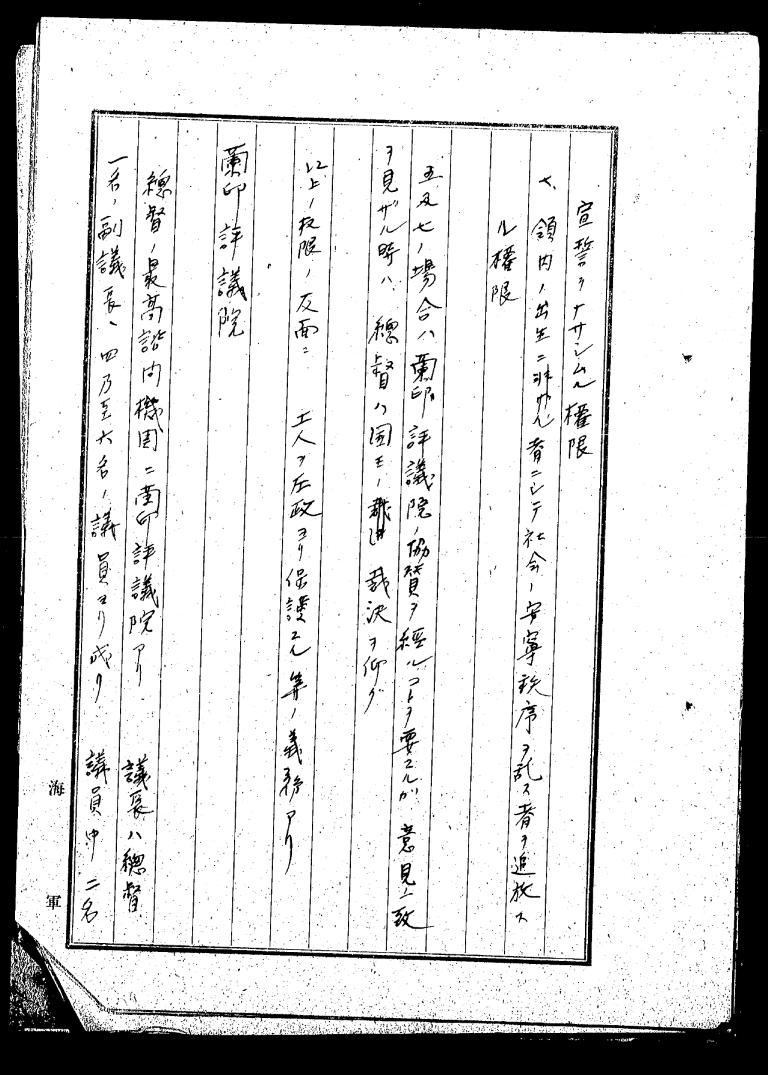 宣誓ヲナサシムル權限
七、領内ノ出生ニ非ザル者ニシテ社会ノ安寧秩序ヲ乱ス者ヲ追放ス
ル權限
五及七ノ場合ハ蘭印評議院ノ協賛ヲ経ルコトヲ要スルガ 意見一致
ヲ見ザル時ハ 總督ハ国王ノ裁決ヲ仰グ
以上ノ权限ノ反面ニ 土人ヲ圧政ヨリ保護スル等ノ義務アリ
蘭印評議院
總督ノ最高諮问機関ニ蘭印評議院アリ 議長ハ總督
一名ノ副議長、四乃至六名ノ議員ヨリ成リ 議員中二名
海軍